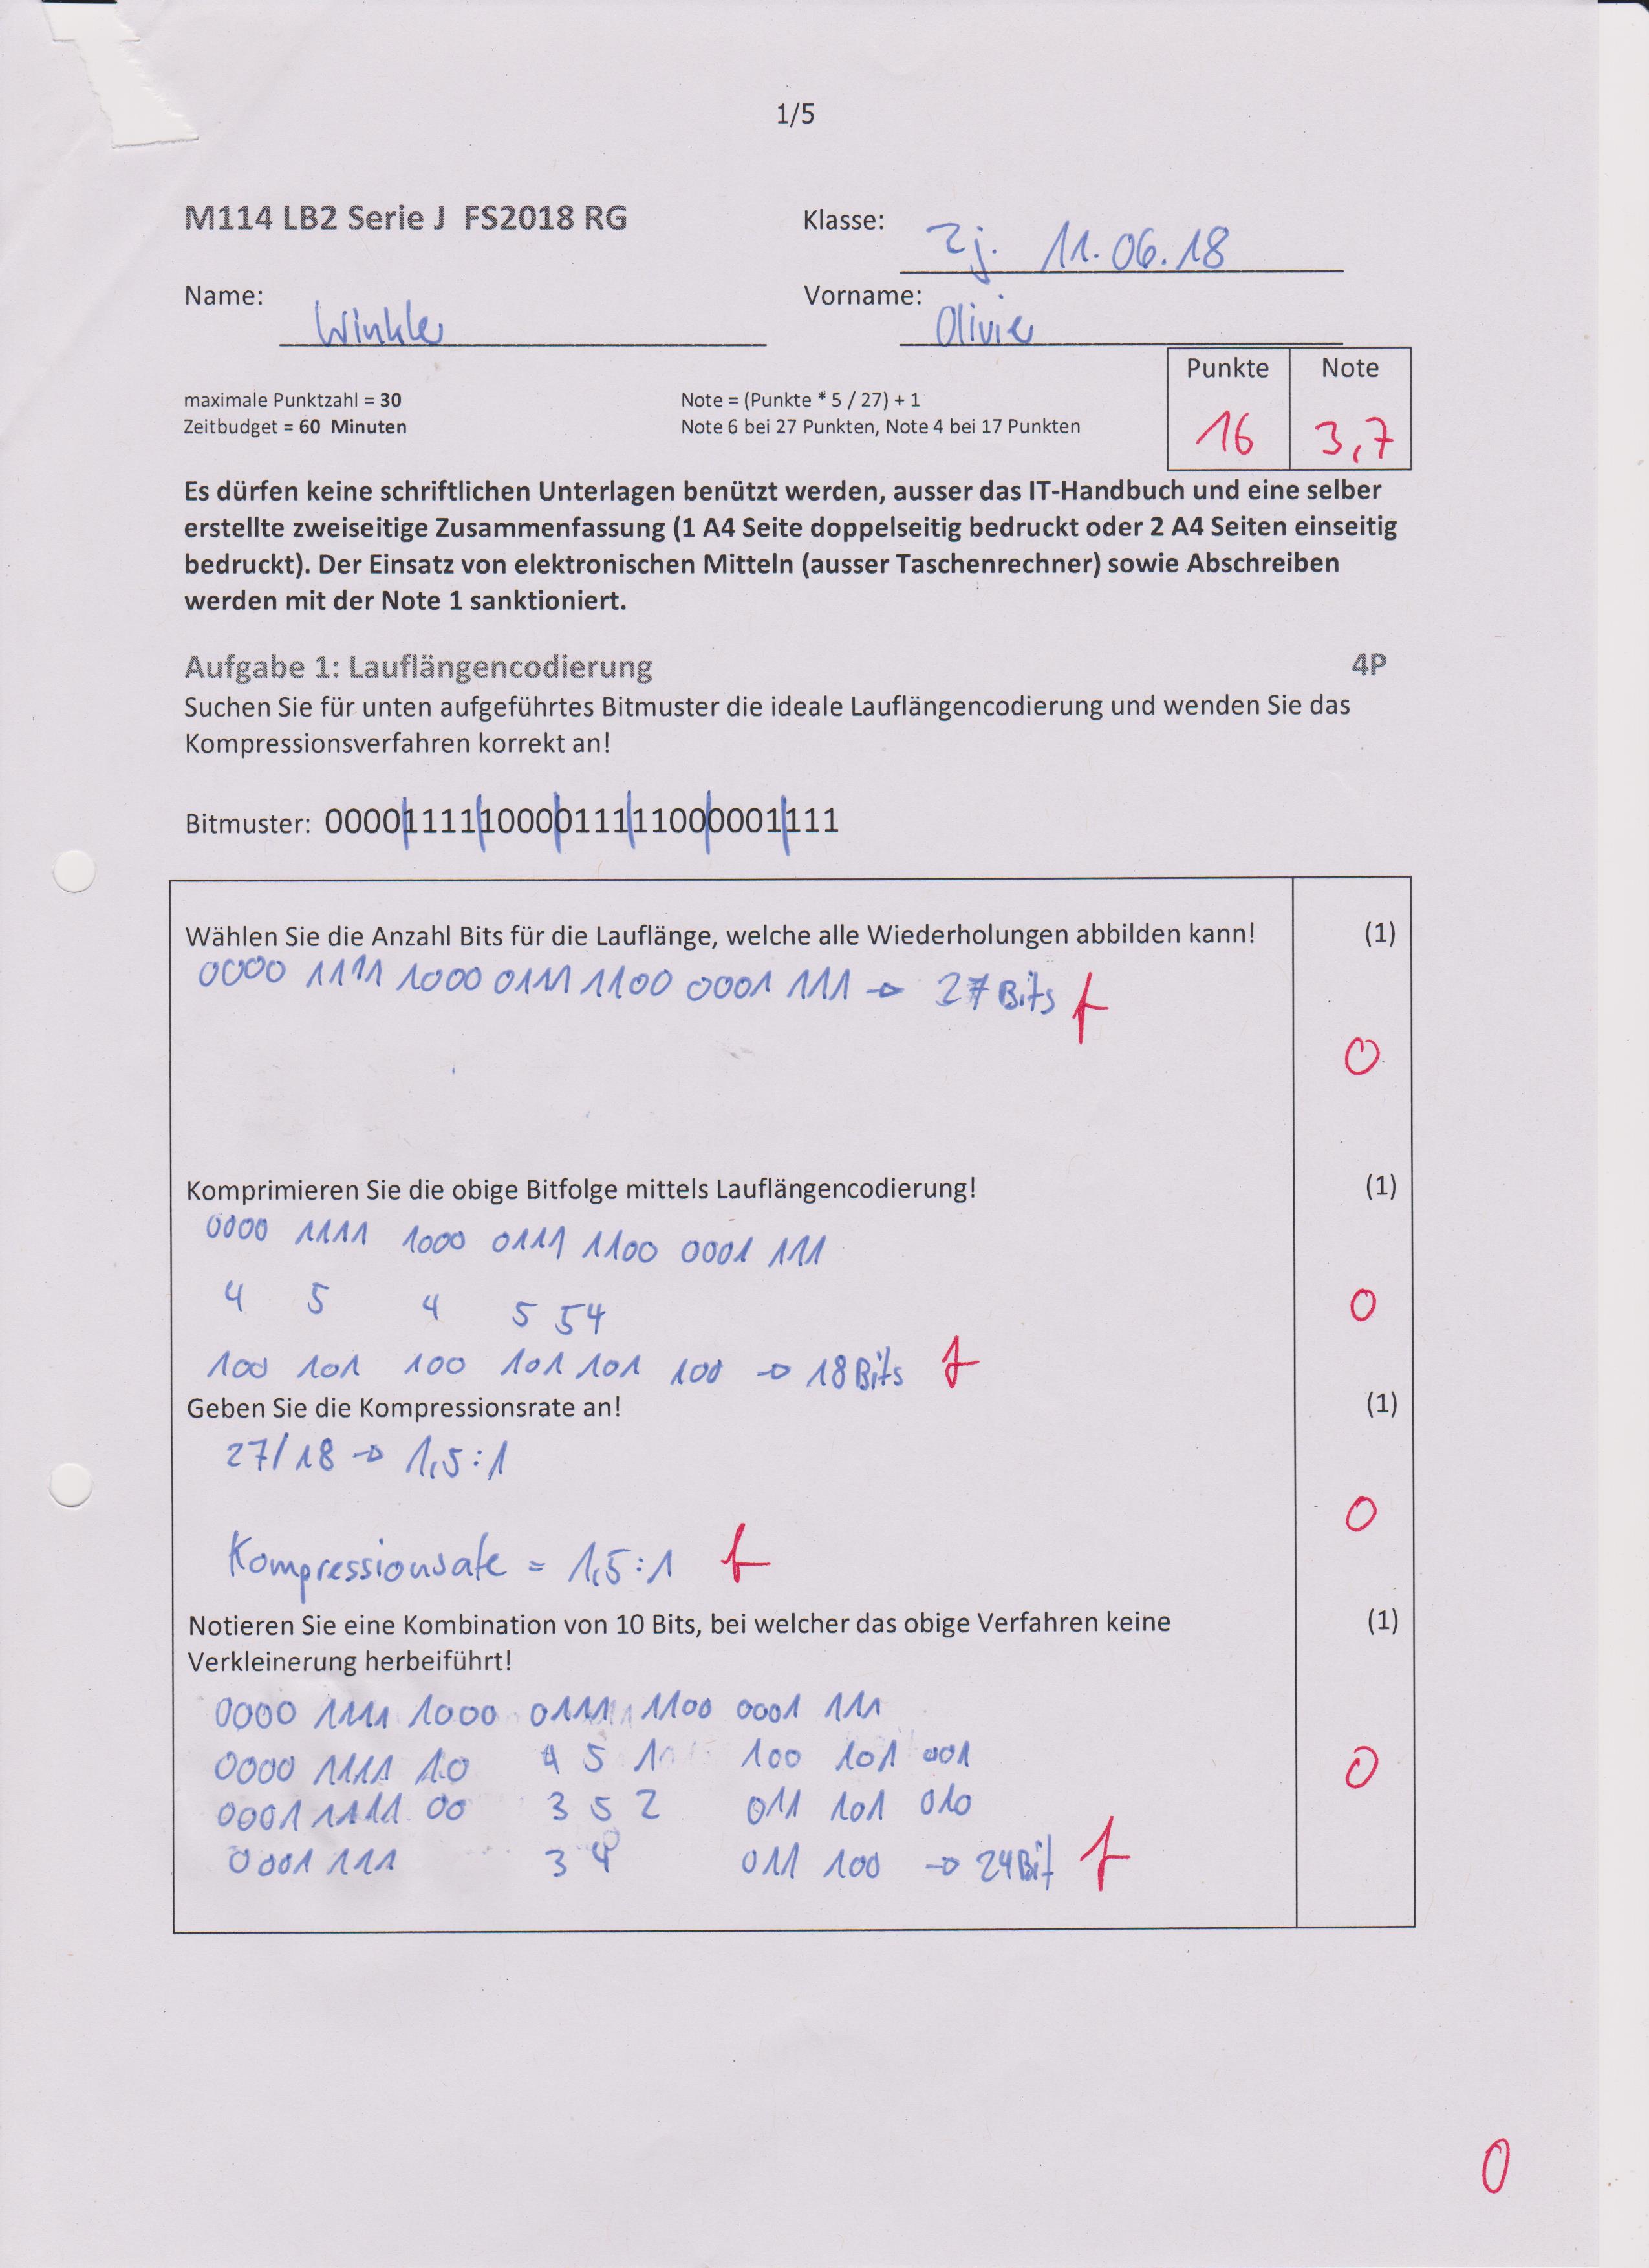 1/5
M114 LB2 Serie J FS2018 RG
Klasse: 2j. 11.06.18
Name: Winkler
Vorname: Olivier
Punkte Note
16 3,7
maximale Punktzahl = 30
Note = (Punkte * 5 / 27) + 1
Zeitbudget = 60 Minuten
Note 6 bei 27 Punkten, Note 4 bei 17 Punkten
Es dürfen keine schriftlichen Unterlagen benützt werden, ausser das IT-Handbuch und eine selber
erstellte zweiseitige Zusammenfassung (1 A4 Seite doppelseitig bedruckt oder 2 A4 Seiten einseitig
bedruckt). Der Einsatz von elektronischen Mitteln (ausser Taschenrechner) sowie Abschreiben
werden mit der Note 1 sanktioniert.
Aufgabe 1: Lauflängencodierung 4P
Suchen Sie für unten aufgeführtes Bitmuster die ideale Lauflängencodierung und wenden Sie das
Kompressionsverfahren korrekt an!
Bitmuster: 000011111000011111000001111
Wählen Sie die Anzahl Bits für die Lauflänge, welche alle Wiederholungen abbilden kann! (1)
0000 1111 1000 0111 1100 0001 111 → 27 Bits f
0
Komprimieren Sie die obige Bitfolge mittels Lauflängencodierung! (1)
0000 1111 1000 0111 1100 0001 111
4 5 4 5 5 4
0
100 101 100 101 101 100 → 18 Bits f
Geben Sie die Kompressionsrate an! (1)
27/18 → 1,5:1
0
Kompressionsate = 1,5:1 f
Notieren Sie eine Kombination von 10 Bits, bei welcher das obige Verfahren keine (1)
Verkleinerung herbeiführt!
0000 1111 1000 0111 1100 0001 111
0000 1111 10 4 5 1 100 101 001
0
0001 1111 00 3 5 2 011 101 010
0001 111 3 4 011 100 → 24 Bit f
0